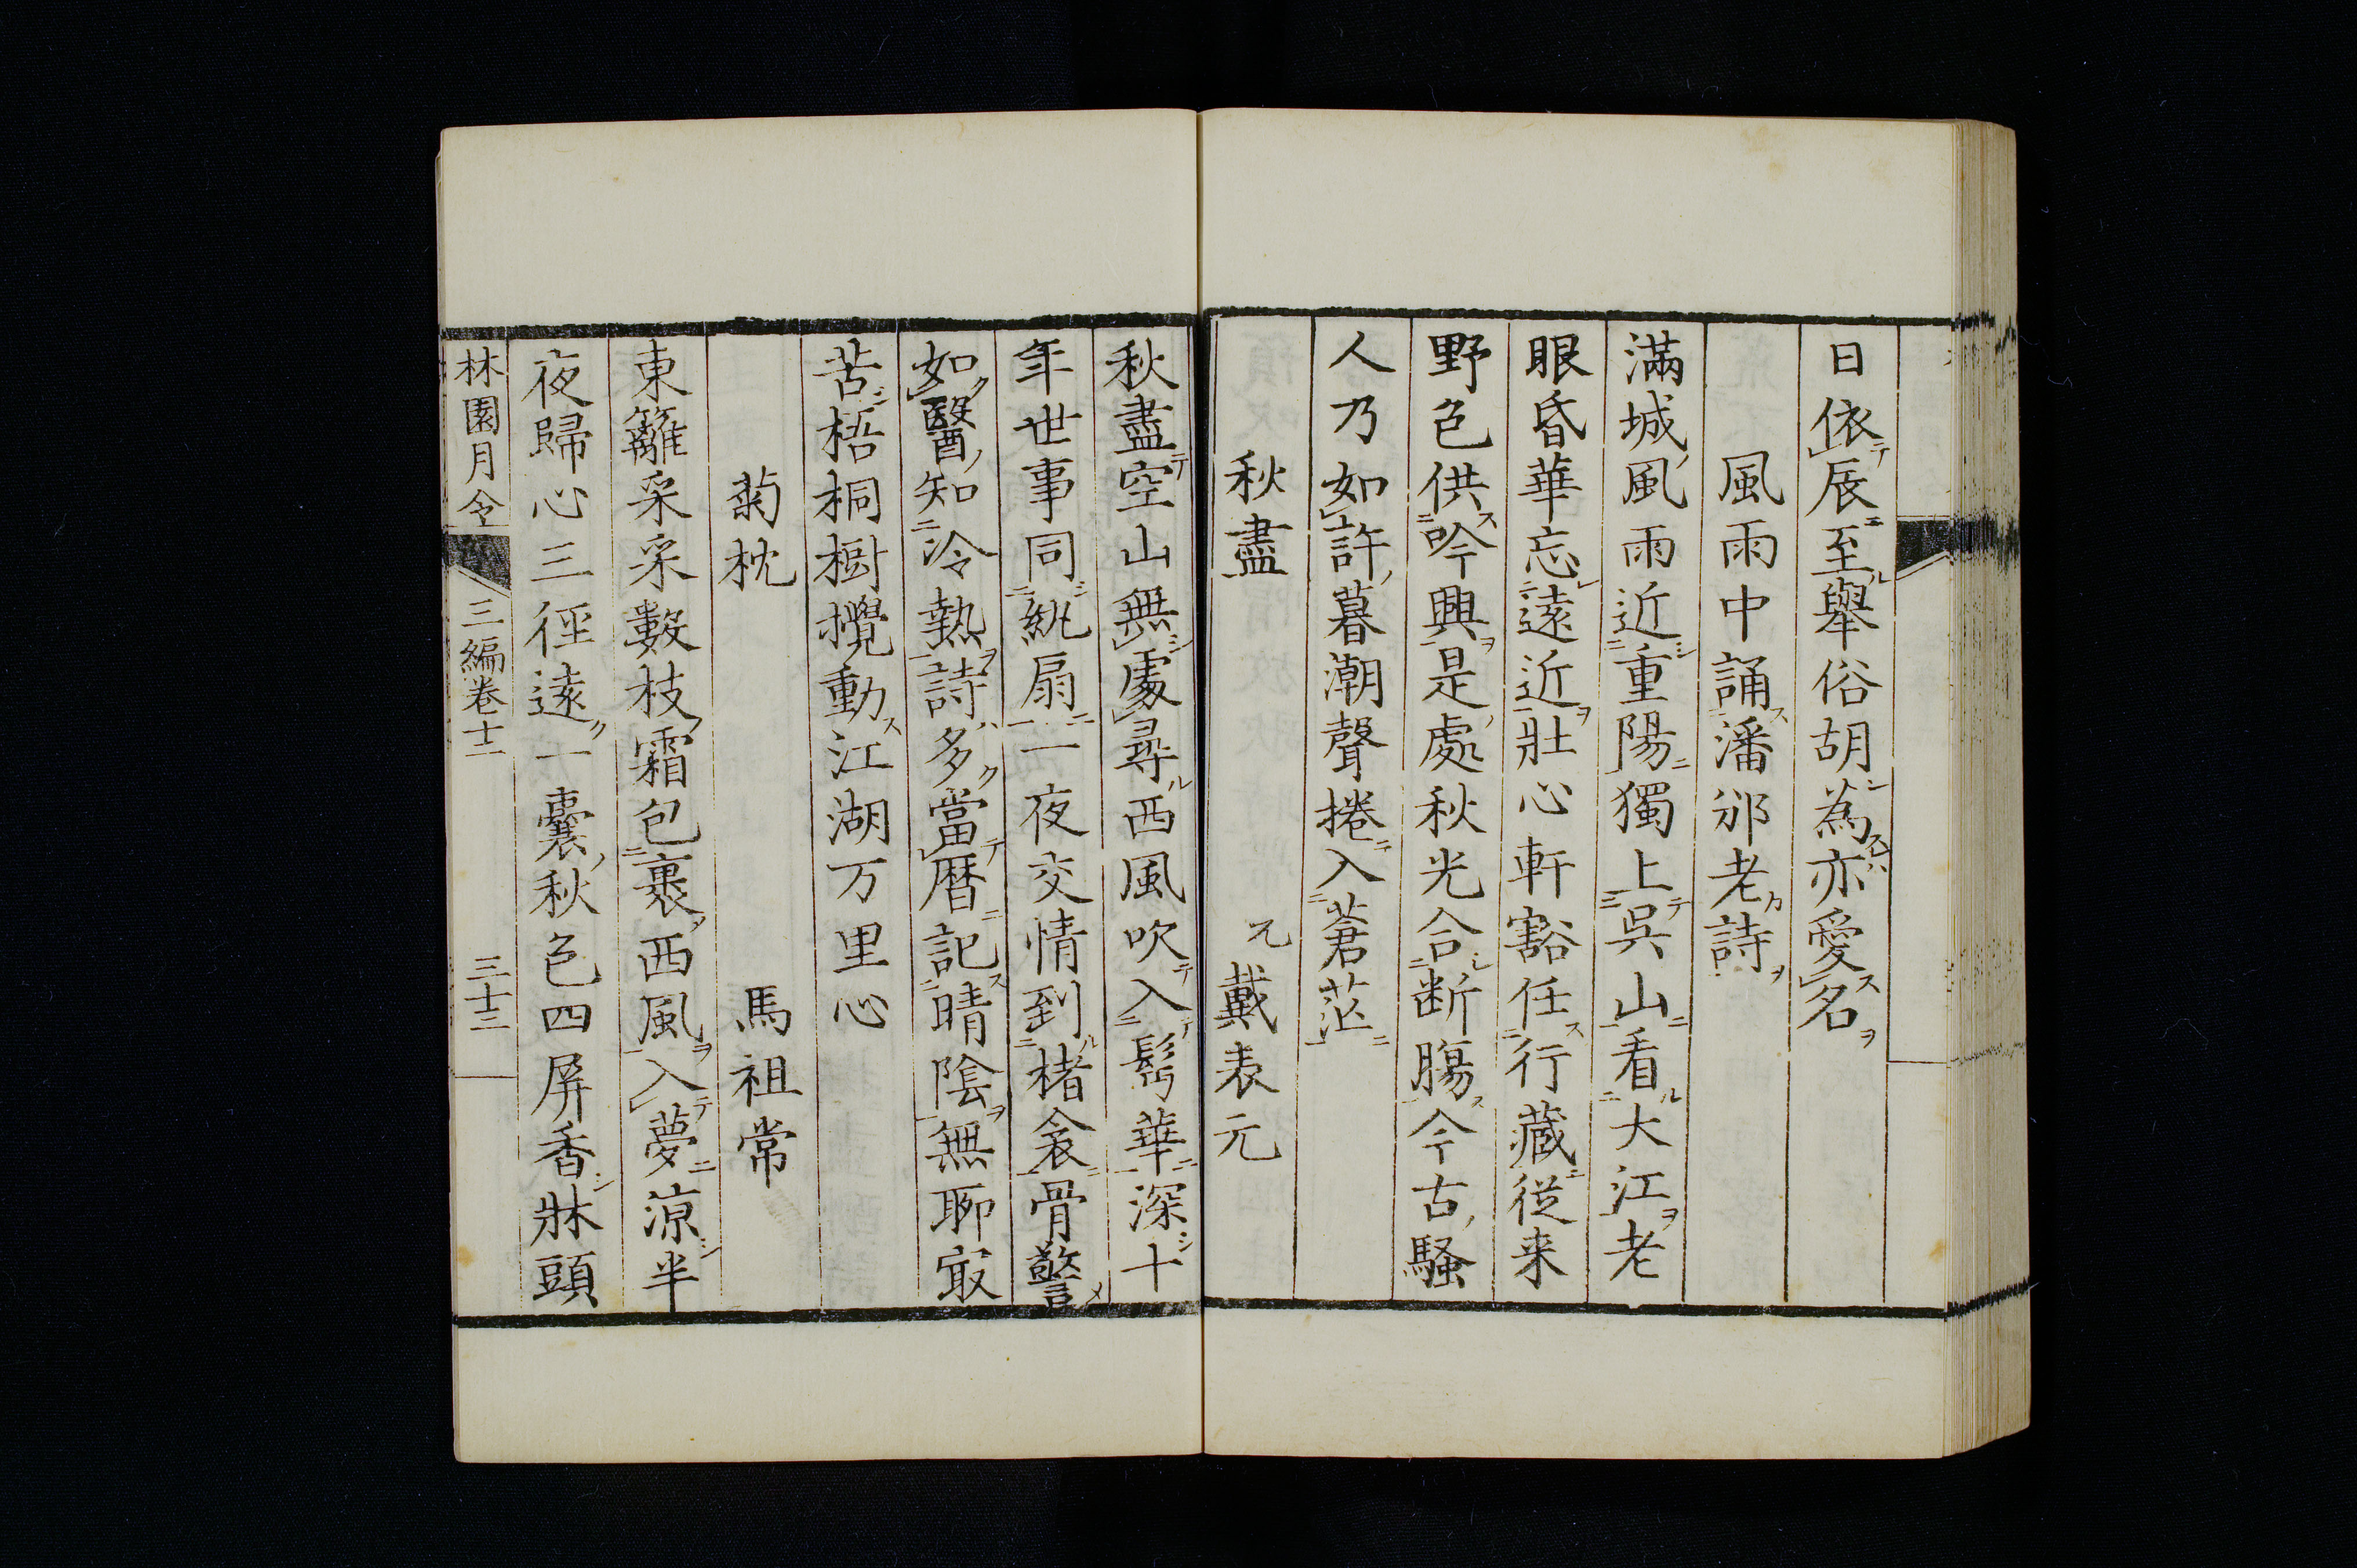 日依辰至舉俗胡為亦愛名
風雨中誦潘邠老詩
滿城風雨近重陽獨上吳山看大江老
眼昏華忘遠近壯心軒豁任行藏從来
野色供吟興是處秋光合断腸今古騷
人乃如許暮潮聲捲入蒼茫
秋盡　元 戴表元
秋盡空山無處尋西風吹入鬂華深十
年世事同紈扇一夜交情到楮衾骨警
如醫知冷熱詩多當曆記晴陰無聊㝡
苦梧桐樹攪動江湖万里心
菊枕　馬祖常
東籬采采數枝霜包裹西風入夢涼半
夜歸心三徑遠一囊秋色四屏香牀頭
林園月令 三編卷十二 三十三